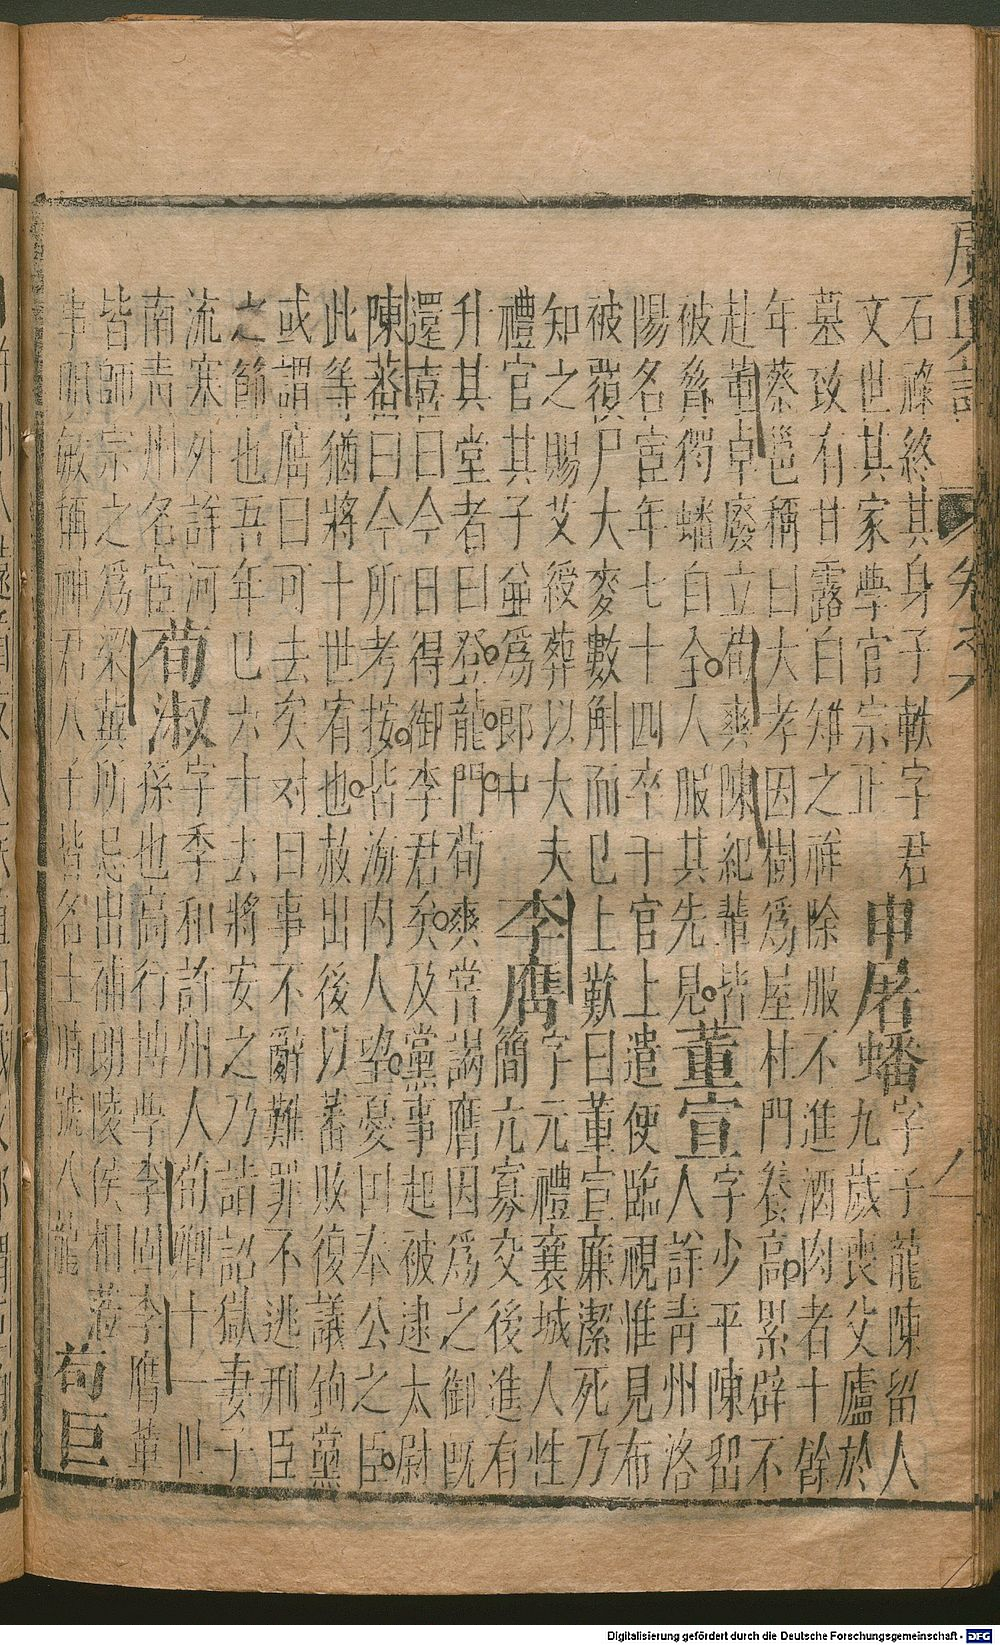 廣輿記
卷六
八
石祿終其身子軼字君
文世其家學官宗正
申屠蟠
字子龍陳留人
九歲喪父廬於
墓致有甘露白雉之祥除服不進酒肉者十餘
年蔡邕稱曰大孝因樹爲屋杜門養高累辟不
赴董卓廢立荀爽陳紀輩皆
被脅獨蟠自全人服其先見
董宣
字少平陳留
人詳青州洛
陽名宦年七十四卒于官上遣使臨視惟見布
被覆尸大麥數斛而已上歎曰董宣廉潔死乃
知之賜艾綬葬以大夫
禮官其子並爲郎中
李膺
字元禮襄城人性
簡亢寡交後進有
升其堂者曰登龍門荀爽嘗謁膺因爲之御旣
還喜曰今日得御李君矣及黨事起被逮太尉
陳蕃曰今所考按皆海內人望憂国奉公之臣
此等猶將十世宥也赦出後以蕃敗復議鉤黨
或謂膺曰可去矣对曰事不辭難罪不逃刑臣
之節也吾年已六十去將安之乃詣詔獄妻子
流寒外詳河
南青州名宦
荀淑
字季和許州人荀卿十一世
孫也高行博學李固李膺輩
皆師宗之爲梁冀所忌出補朗陵侯相蒞
事明敏稱神君八子皆名士時號八龍
荀巨
Digitalisierung gefördert durch die Deutsche Forschungsgemeinschaft - DFG